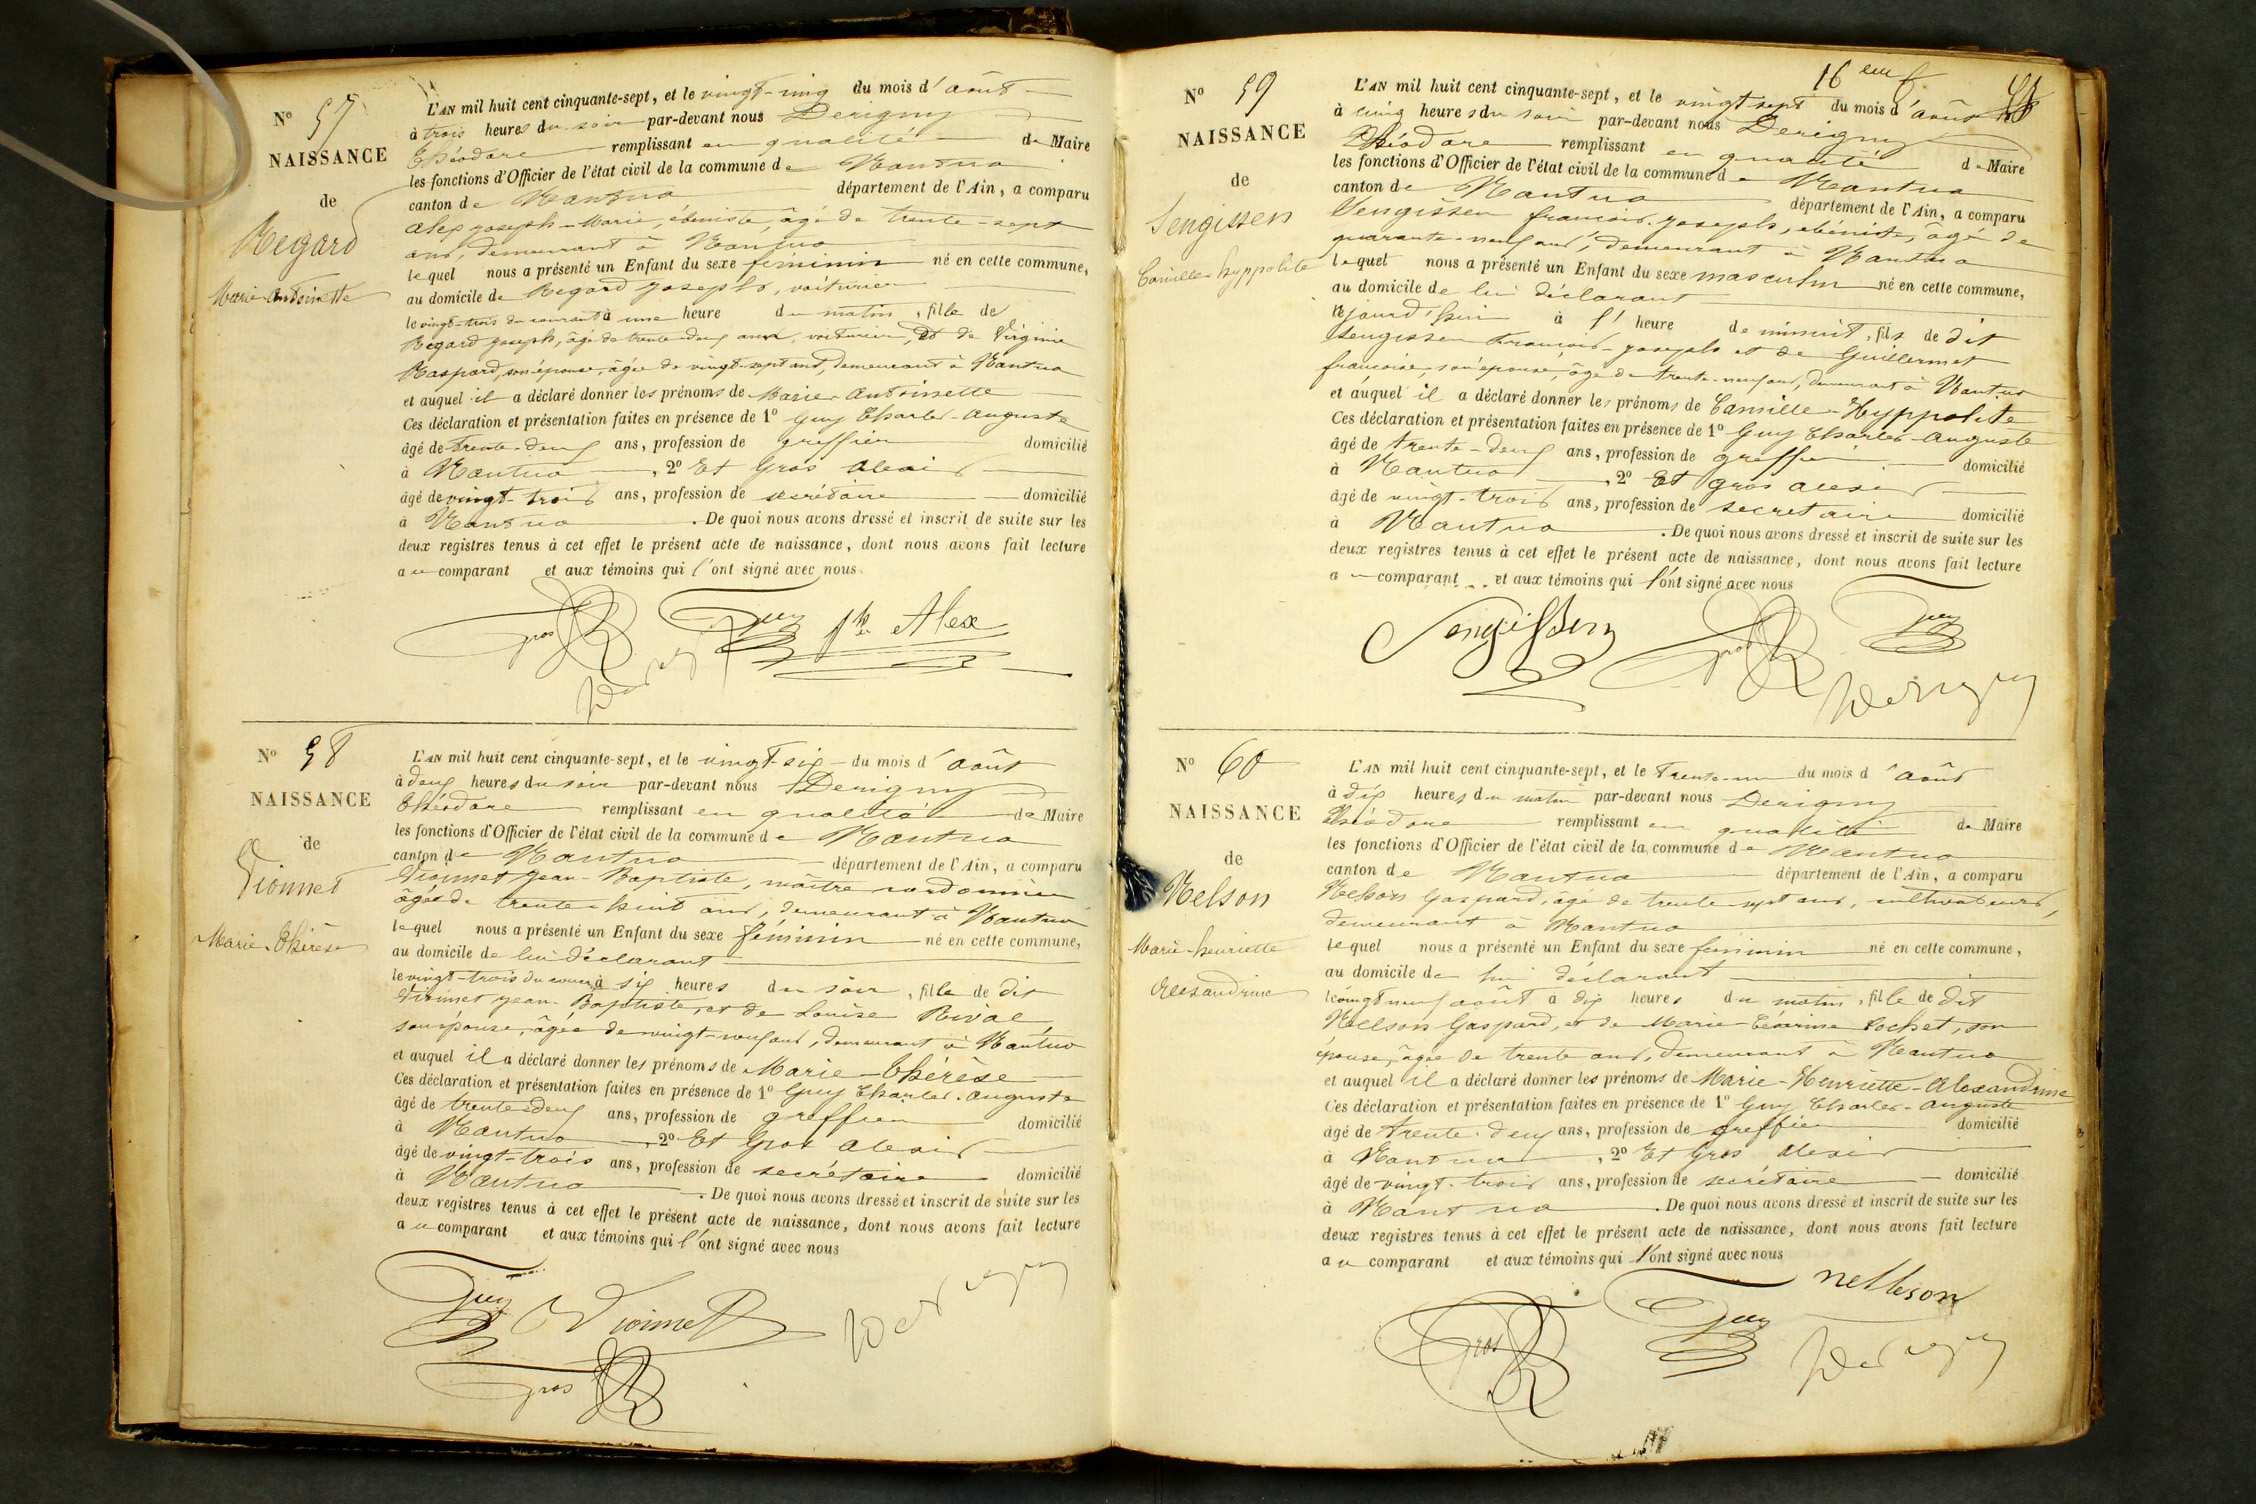 N° 57
NAISSANCE
de
Regard
Marie-Antoinette
L'AN mil huit cent cinquante-sept, et le vingt-cinq du mois d'août
à trois heures du soir par-devant nous Derigny
Théodore remplissant en qualité de Maire
les fonctions d'Officier de l'état civil de la commune de Nantua
canton de Nantua département de l'Ain, a comparu
Alex Joseph-Marie, ébéniste, âgé de trente-sept
ans, demeurant à Nantua
lequel nous a présenté un Enfant du sexe féminin né en cette commune,
au domicile de Regard Joseph, voiturier
le vingt-trois du courant à une heure du matin, fille de
Regard Joseph, âgé de trente-deux ans, voiturier, et de Virginie
Raspard, son épouse, âgée de vingt-sept ans, demeurant à Nantua
et auquel il a déclaré donner les prénoms de Marie-Antoinette
Ces déclaration et présentation faites en présence de 1° Guy Charles-Auguste
âgé de trente-deux ans, profession de greffier domicilié
à Nantua, 2° Et Gros Alexis
âgé de vingt-trois ans, profession de secrétaire domicilié
à Nantua. De quoi nous avons dressé et inscrit de suite sur les
deux registres tenus à cet effet le présent acte de naissance, dont nous avons fait lecture
au comparant et aux témoins qui l'ont signé avec nous.
Gros Guy Alex
Derigny
N° 58
NAISSANCE
de
Vionnet
Marie-Thérèse
L'AN mil huit cent cinquante-sept, et le vingt-six du mois d'août
à deux heures du soir par-devant nous Derigny
Théodore remplissant en qualité de Maire
les fonctions d'Officier de l'état civil de la commune de Nantua
canton de Nantua département de l'Ain, a comparu
Vionnet Jean-Baptiste, maître cordonnier
âgé de trente-huit ans, demeurant à Nantua
lequel nous a présenté un Enfant du sexe féminin né en cette commune,
au domicile de lui déclarant
le vingt-trois du courant à six heures du soir, fille de dit
Vionnet Jean-Baptiste, et de Louise Rival,
son épouse, âgée de vingt-neuf ans, demeurant à Nantua
et auquel il a déclaré donner les prénoms de Marie-Thérèse
Ces déclaration et présentation faites en présence de 1° Guy Charles-Auguste
âgé de trente-deux ans, profession de greffier domicilié
à Nantua, 2° Et Gros Alexis
âgé de vingt-trois ans, profession de secrétaire domicilié
à Nantua. De quoi nous avons dressé et inscrit de suite sur les
deux registres tenus à cet effet le présent acte de naissance, dont nous avons fait lecture
au comparant et aux témoins qui l'ont signé avec nous
Guy Vionnet Derigny
Gros
16 eme f
N° 59
NAISSANCE
de
Sengissen
Camille-hyppolite
L'AN mil huit cent cinquante-sept, et le vingt-sept du mois d'août
à cinq heures du soir par-devant nous Derigny
Théodore remplissant en qualité de Maire
les fonctions d'Officier de l'état civil de la commune de Nantua
canton de Nantua département de l'Ain, a comparu
Sengissen françois-joseph, ébéniste, âgé de
quarante-neuf ans, demeurant à Nantua
lequel nous a présenté un Enfant du sexe masculin né en cette commune,
au domicile de lui déclarant
jourd'hui à l' heure de minuit, fils de dit
Sengissen François-joseph et de Guillermet
françoise, son épouse, âgée de trente-neuf ans, demeurant à Nantua
et auquel il a déclaré donner les prénoms de Camille-Hyppolite
Ces déclaration et présentation faites en présence de 1° Guy Charles-Auguste
âgé de trente-deux ans, profession de greffier domicilié
à Nantua, 2° Et gros alexis
âgé de vingt-trois ans, profession de secretaire domicilié
à Nantua. De quoi nous avons dressé et inscrit de suite sur les
deux registres tenus à cet effet le présent acte de naissance, dont nous avons fait lecture
au comparant et aux témoins qui l'ont signé avec nous
Sengissen Gros Guy
Derigny
N° 60
NAISSANCE
de
Nelson
Marie-henriette
Alexandrine
L'AN mil huit cent cinquante-sept, et le trente-un du mois d'août
à dix heures du matin par-devant nous Derigny
Théodore remplissant en qualité de Maire
les fonctions d'Officier de l'état civil de la commune de Nantua
canton de Nantua département de l'Ain, a comparu
Nelson Gaspard, âgé de trente-sept ans, cultivateur,
demeurant à Nantua
lequel nous a présenté un Enfant du sexe féminin né en cette commune,
au domicile de lui déclarant
le vingt neuf août à dix heures du matin, fille de dit
Nelson Gaspard, et de Marie Rochet, son
épouse, âgée de trente ans, demeurant à Nantua
et auquel il a déclaré donner les prénoms de Marie-Henriette-Alexandrine
Ces déclaration et présentation faites en présence de 1° Guy Charles-Auguste
âgé de trente-deux ans, profession de greffier domicilié
à Nantua, 2° Et Gros Alexis
âgé de vingt-trois ans, profession de secrétaire domicilié
à Nantua. De quoi nous avons dressé et inscrit de suite sur les
deux registres tenus à cet effet le présent acte de naissance, dont nous avons fait lecture
au comparant et aux témoins qui l'ont signé avec nous
nelleson
Gros Guy Derigny